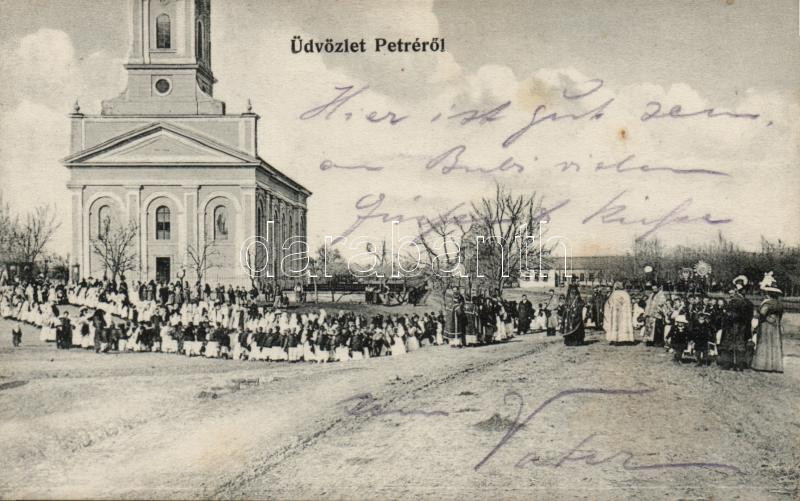 Üdvözlet Petréről
Hier ist gut sein,
an Bubi vielen
darabanth.com
von
Vater